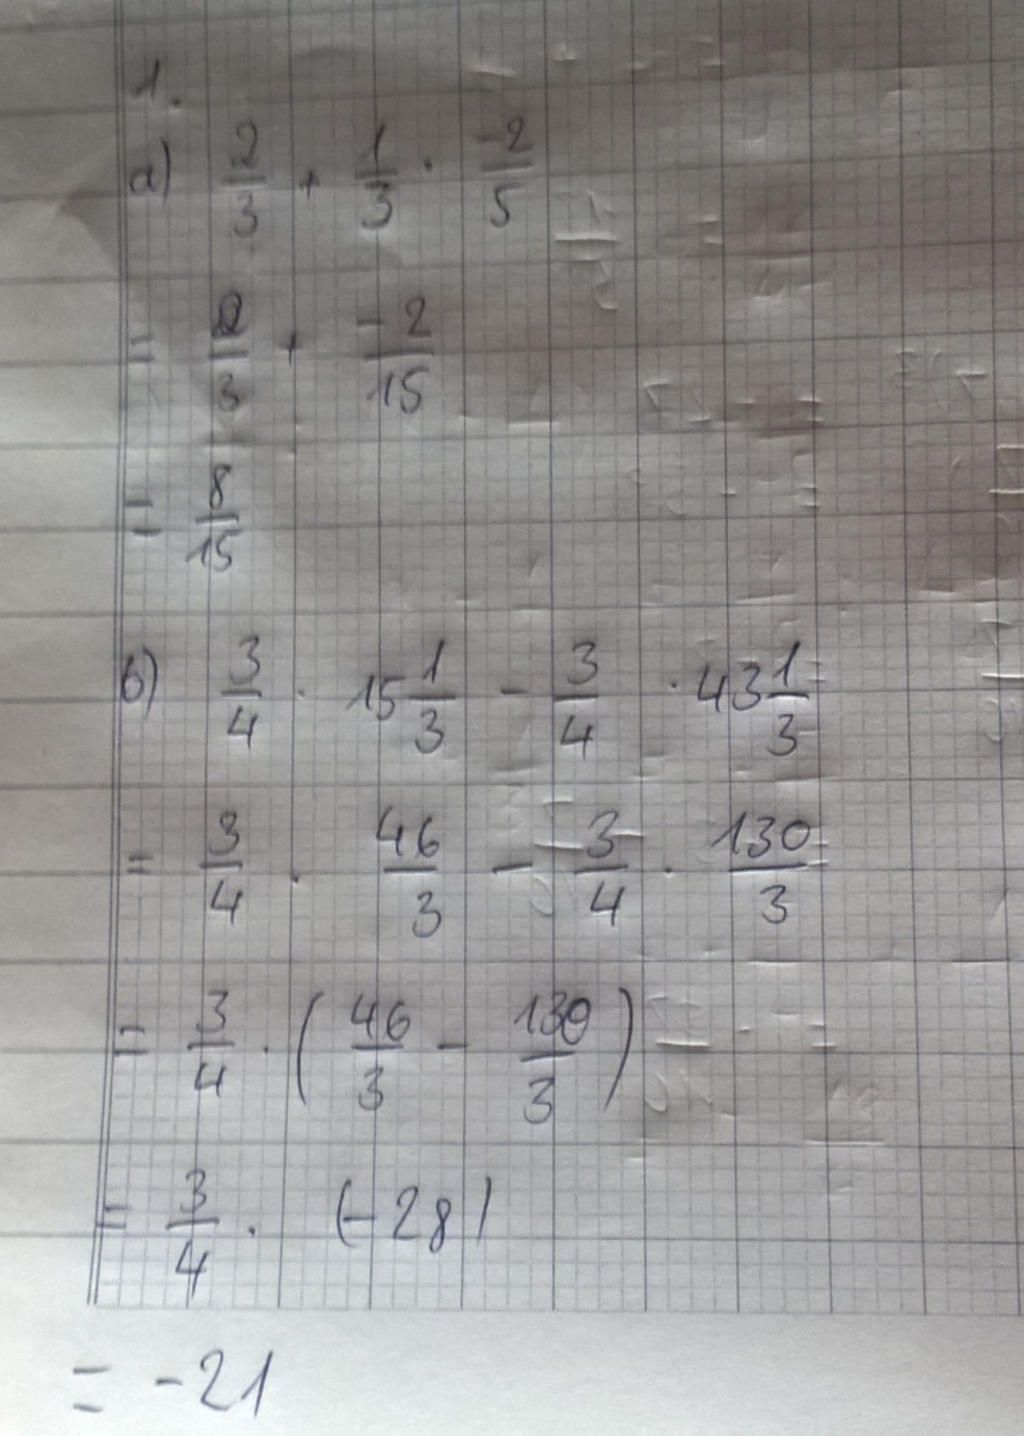 1.
a) 2/3 + 1/3 . -2/5
= 2/3 + -2/15
= 8/15
b) 3/4 . 15 1/3 - 3/4 . 43 1/3
= 3/4 . 46/3 - 3/4 . 130/3
= 3/4 . (46/3 - 130/3)
= 3/4 . (-28)
= -21